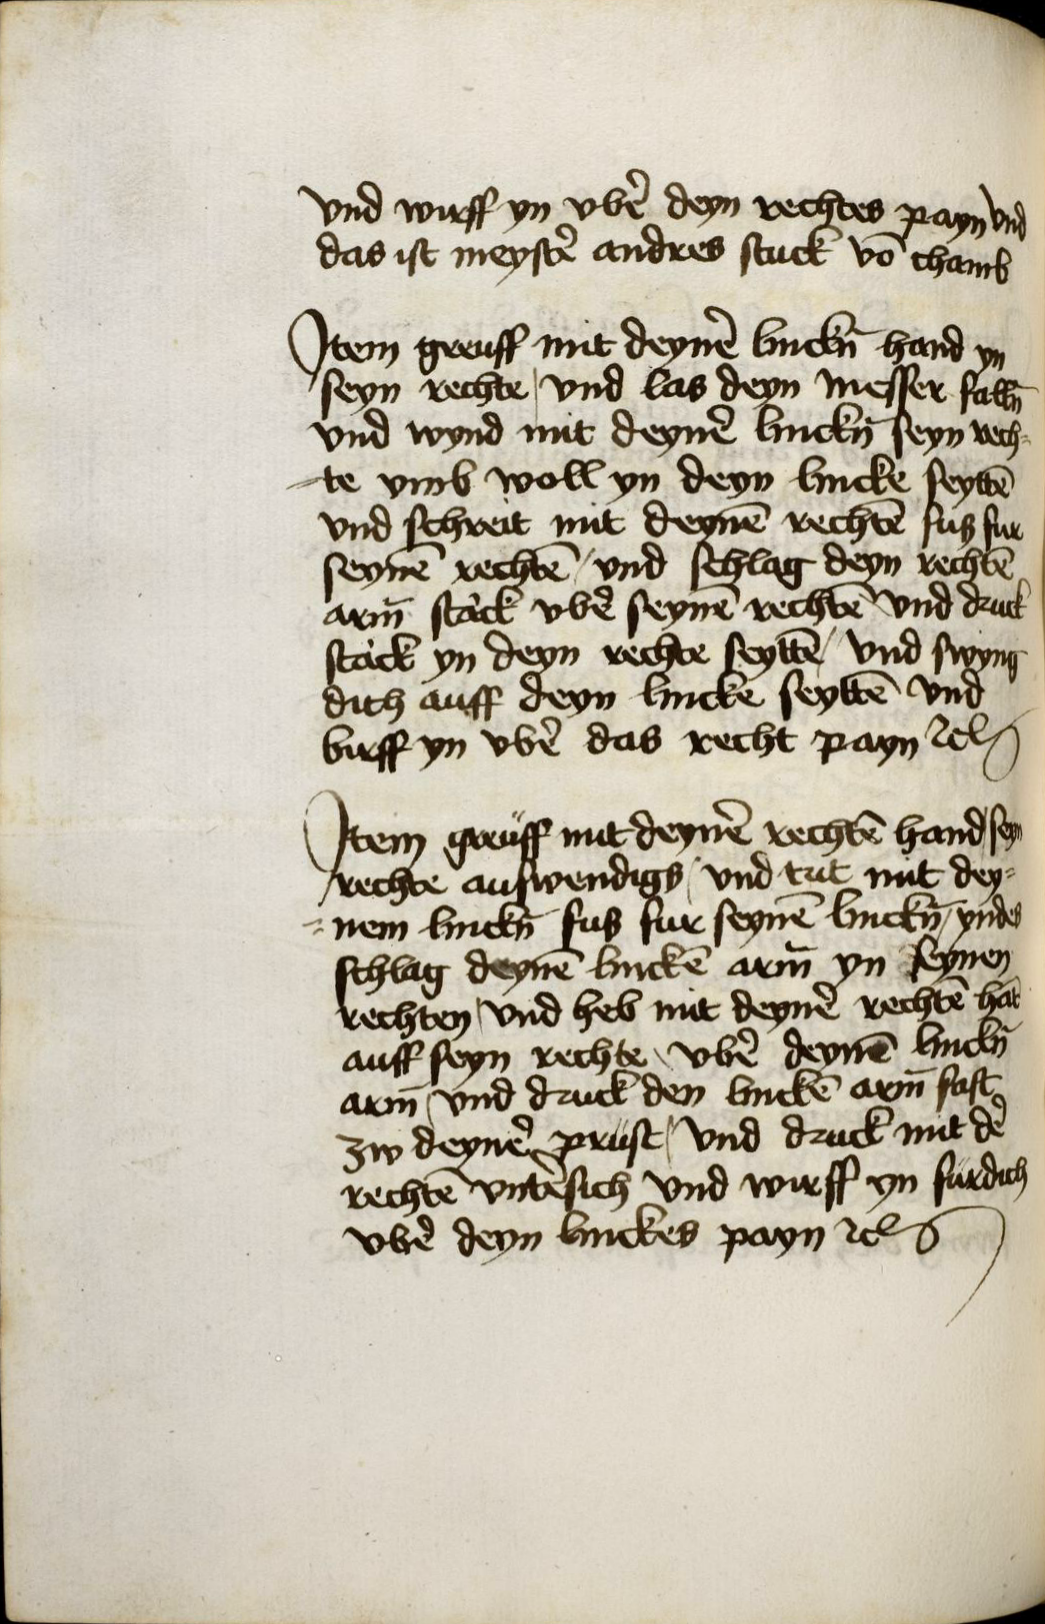 vnd wurff yn vbe᷑ deyn rechtes payn vnd
das ist meyste᷑ andres stuck vō chamb
Item greuff mit deyne᷑ linckn̄ hand yn
seyn rechte / vnd las deyn messer falln̄
vnd wynd mit deyne᷑ linckn̄ seyn rech=
=te vmb woll yn deyn lincke seyttē
vnd schreit mit deynē rechtē fus fur
seynē rechtē / vnd schlag deyn rechtē
arm̄ starck vbe᷑ seynē rechtē vnd druck
starck yn deyn rechte seyttē / vnd swyng
dich auff deyn lincke seyttē vnd
birff yn vbe᷑ das recht payn ꝛcꝭ
Item greüff mit deyne᷑ rechtē hand / seyn
rechte auswendigs / vnd trit mit dey=
=nem linckn̄ fus fur seynē linckn̄ / yndes
schlag deynē linckē arm̄ yn seynen
rechten / vnd heb mit deyne᷑ rechtē hāt
auff seyn rechte / vbe᷑ deynē linckn̄
arm̄ / vnd druck den linckē arm̄ fast
zw deyne᷑ prüst / vnd druck mit de᷑
rechtē vnte᷑sich vnd wirff yn für dich
vbe᷑ deyn linckes payn ꝛcꝭ